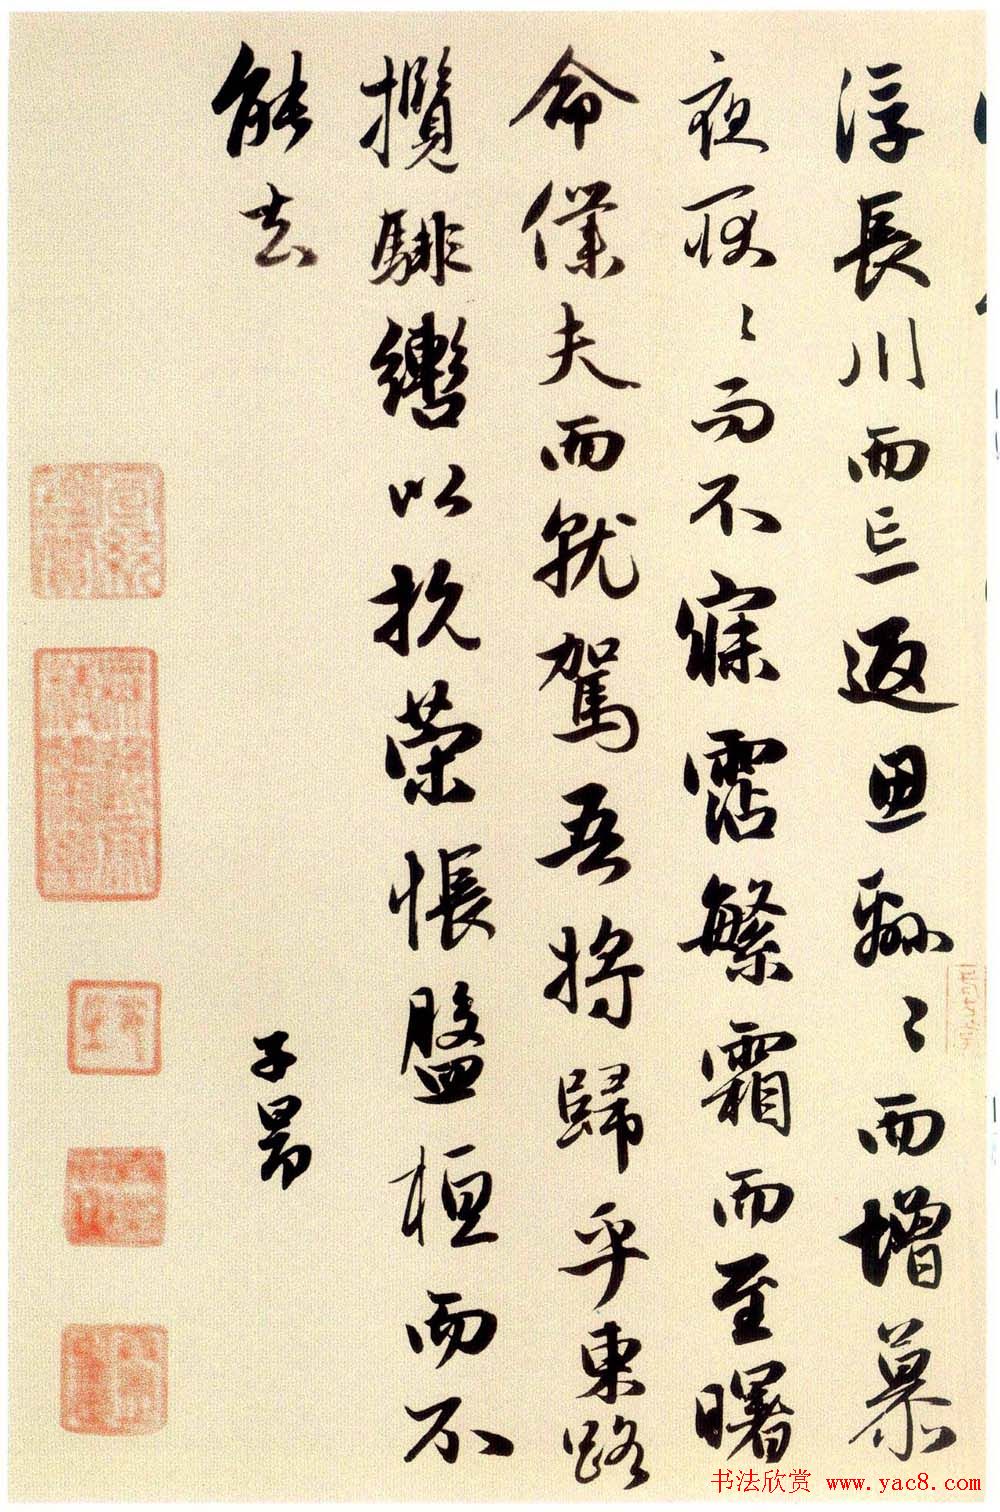 浮長川而忘返思緜〻而增慕
夜耿〻而不寐霑繁霜而至曙
命僕夫而就駕吾將歸乎東路
攬騑轡以抗榮悵盤桓而不
能去
子昂
书法欣赏 www.yac8.com